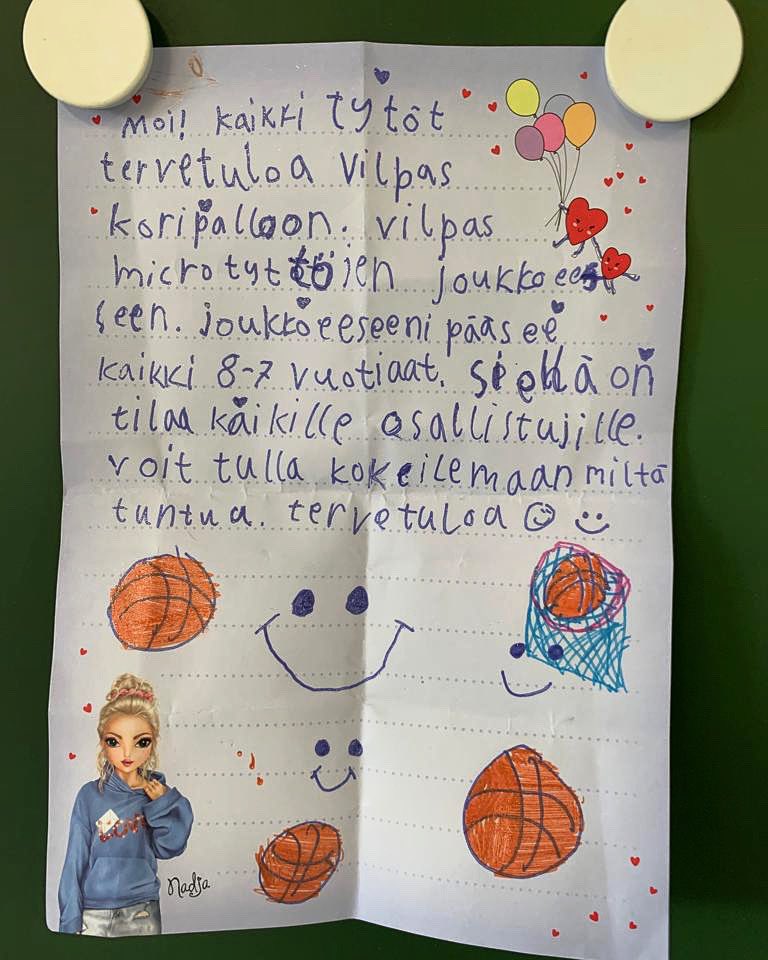 moi! kaikki tytöt
tervetuloa vilpas
koripalloon. vilpas
microtyttöjen joukkoees
seen. joukkoeeseeni pääsee
kaikki 8-7 vuotiaat. siellä on
tilaa kaikille osallistujille.
voit tulla kokeilemaan miltä
tuntua. tervetuloa
LOVE
Nadja